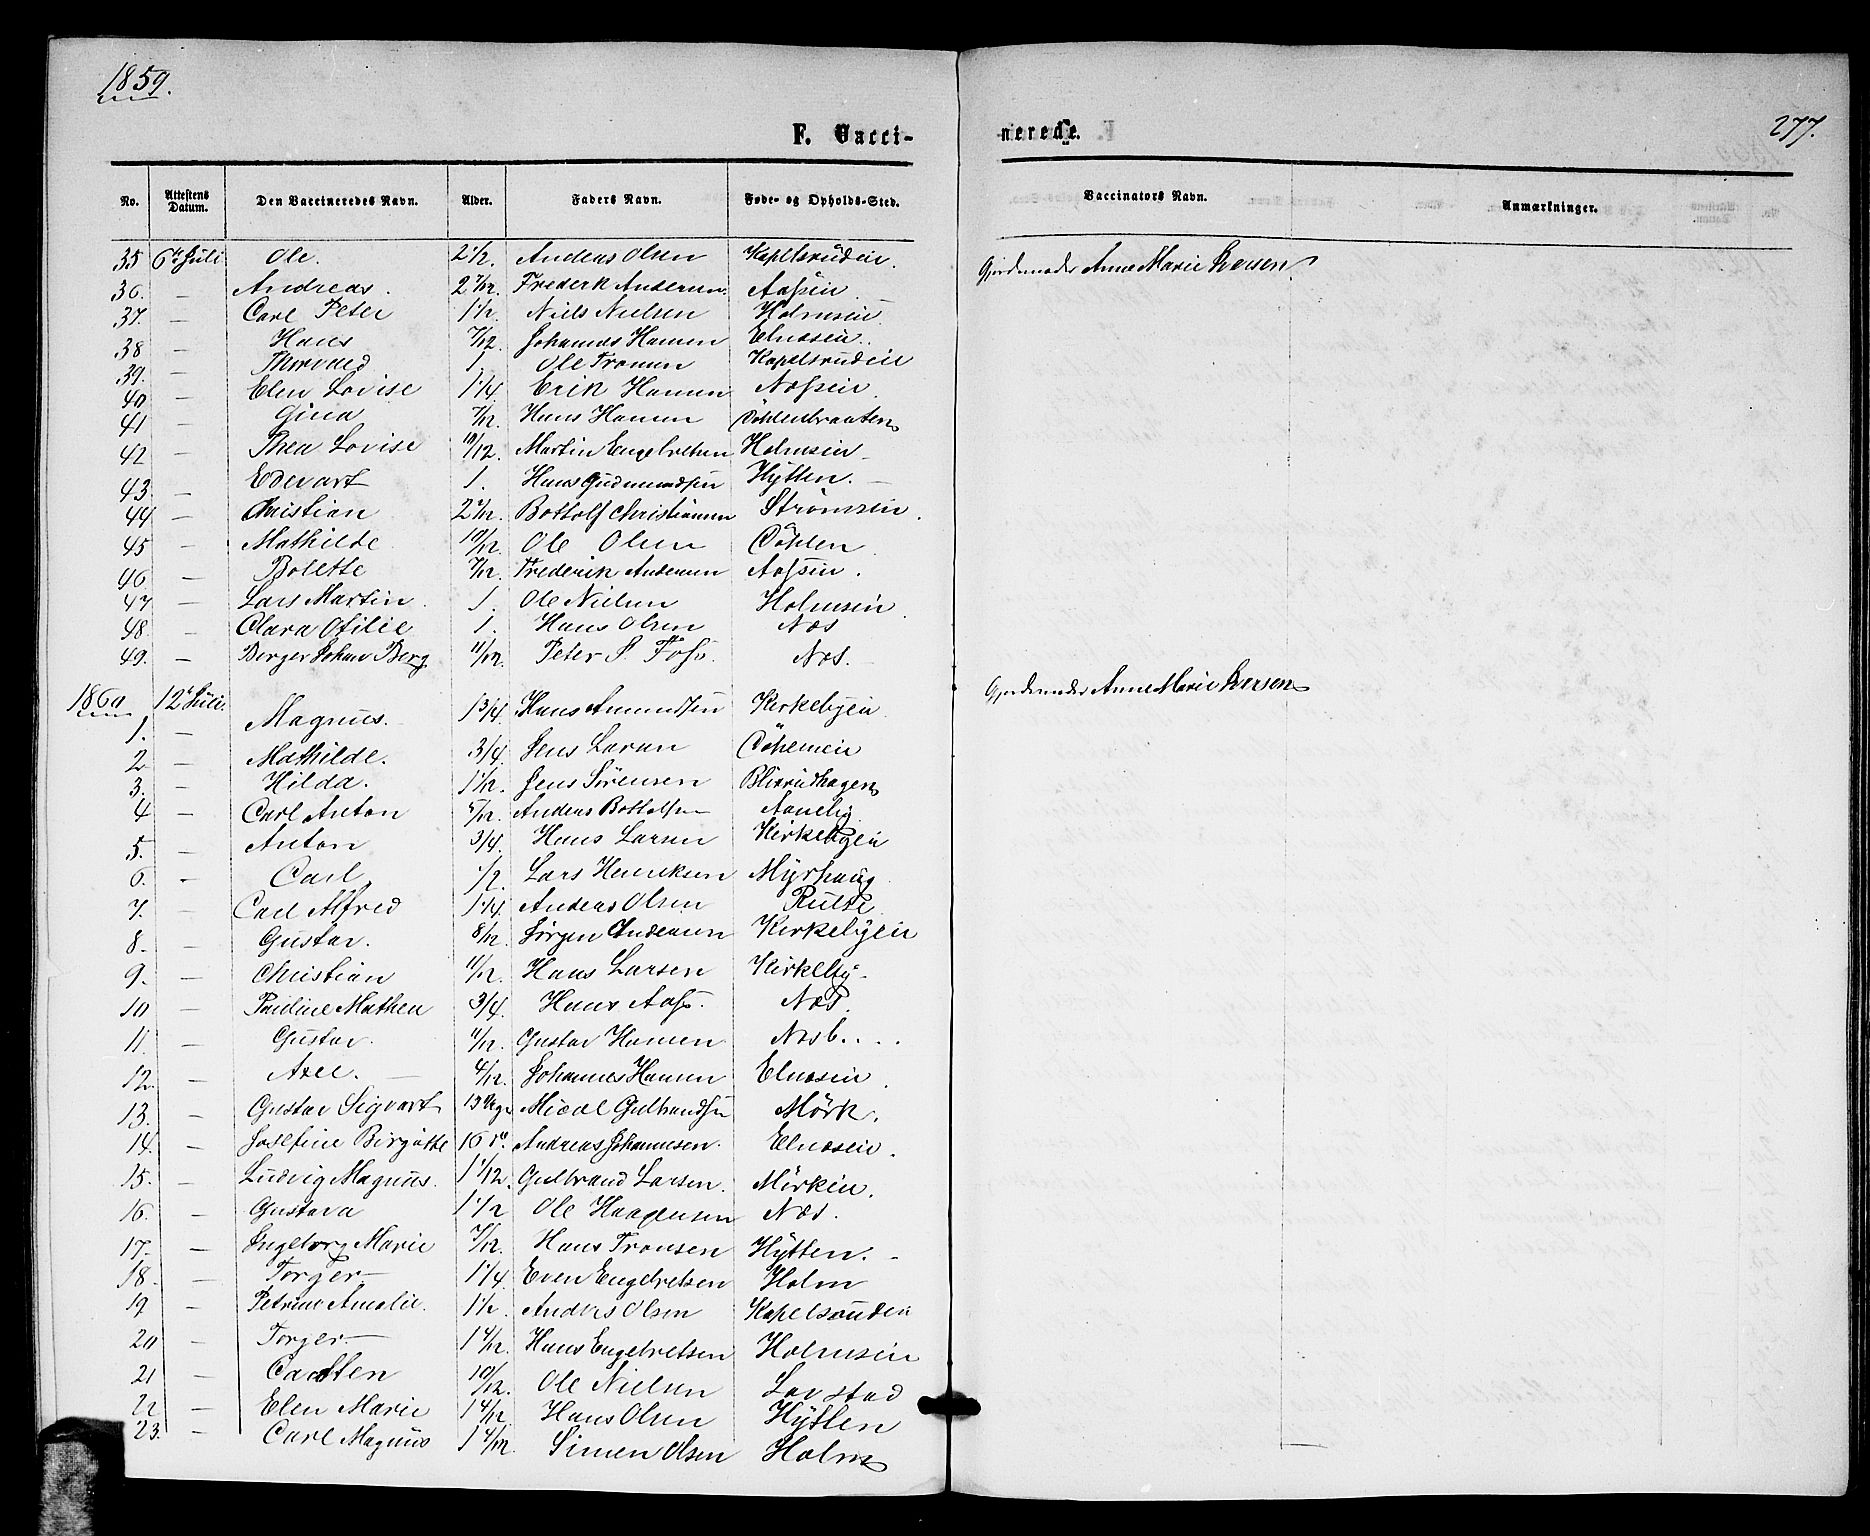 1859.
F. Vaccinerede.
277.
No. Attestens Datum. Den Vaccineredes Navn. Alder. Faders Navn. Føde- og Opholds-Sted. Vaccinators Navn. Anmærkninger.
35 6te Juli Ole. 2 1/2. Anders Olsen Kapelsrudein. Anne Marie
36. — Andreas. 2 7/12. Frederk Andersen. Aasein
37. — Carl Peter 1 1/2. Niels Nielsen Holmsein
38 — Hans 7/12. Johannes Hansen Elnæsein.
39. — Thorvald 1. Ole Tronsen Kapelsrudein
40 — Elen Lovise 1 1/4. Erik Hansen Næssein.
41 — Gina 7/12. Hans Hansen
42 — Thea Lovise 10/12. Martin Engelretsen Holmsein
43. — Edevart 1. Hans Gudmundsen Hytten. —
44. — Christian 2 1/12. Bottolf Christiansen Strømsein.
45 — Mathilde 10/12. Ole Olsen
46 — Bolette 7/12. Frederik Andersen Aasein.
47 — Lars Martin. 1. Ole Nielsen Holmsein
48 — Clara Otilie 1. Hans Olsen Næs
49. — Berger Johan Berg 11/12. Peter P. Foss. Næs.
1860 12te Juli. Anne Marie
1. — Magnus. 1 3/4. Hans Amundsen Kirkebyein
2 — Mathilde. 3/4. Jens Larsen
3. — Hilda. 1 1/2. Jens Sørensen Blixrudhagen
4 — Carl Anton 5/12. Anders Bottolfsen Aaneby
5. — Anton 3/4. Hans Larsen Kirkebyein
6. — Carl 1/2. Lars Henriksen Myrhaug
7. — Carl Alfred 1 1/4. Anders Olsen
8. — Gustav. 8/12. Jørgen Andersen Kirkebyein
9. — Christian 11/12. Hans Larsen Kirkeby
10 — Pauline Mathea 3/4. Hans Aas. Næs
11. — Gustav. 11/12. Gustav Hansen Næsb....
12. — Axel. — 4/12. Johannes Hansen Elnæsein.
13. — Gustav Sigvart 13 Gulbrandsen Mörk.
14. — Josefine Birgitte 16 Andreas Johannesen. Elnæsein.
15. — Ludvig Magnus. 1 1/12. Gulbrand Larsen. Mörkein.
16. — Gustava 1 1/2 Ole Haagensen Næs.
17. — Ingeborg Marie 7/12. Hans Tronsen Hytten. —
18. — Torger — 1 1/4. Even Engelretsen Holm
19 — Petrine Amalie. 1 1/2. Anders Olsen Kapelsrudein
20 — Torger — 1 4/12. Hans Engelretsen Holmsein
21 — Carsten 10/12. Ole Nielsen Lovstad
22 — Elen Marie 1 4/12. Hans Olsen Hytten
23. Carl Magnus 1 4/12. Simen Olsen Holm